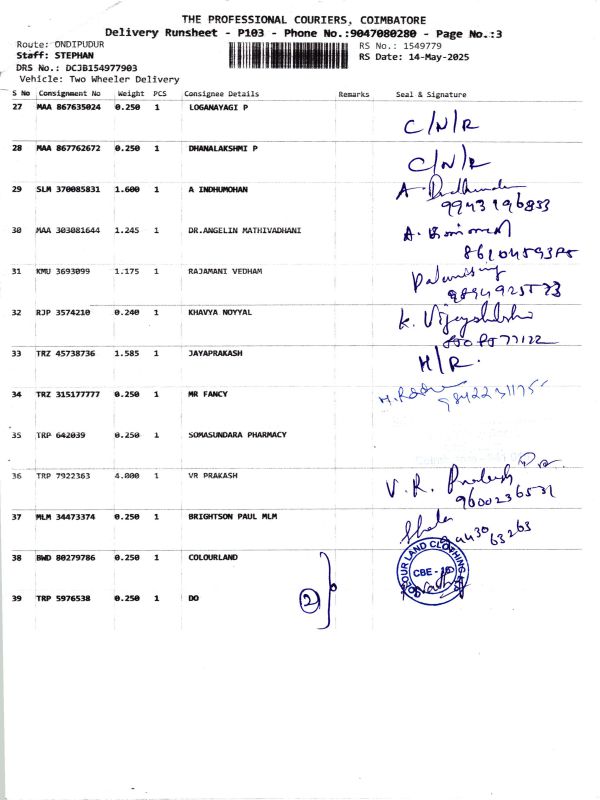 THE PROFESSIONAL COURIERS, COIMBATORE
Delivery Runsheet - P103 - Phone No.:9047080280 - Page No.:3
Route: ONDIPUDUR
RS No.: 1549779
Staff: STEPHAN
RS Date: 14-May-2025
DRS No.: DCJB154977903
Vehicle: Two Wheeler Delivery
S No Consignment No Weight PCS Consignee Details Remarks Seal & Signature
27 MAA 867635024 0.250 1 LOGANAYAGI P
C/N/R
28 MAA 867762672 0.250 1 DHANALAKSHMI P
C/N/R
29 SLM 370085831 1.600 1 A INDHUMOHAN
A.
9943196833
30 MAA 303081644 1.245 1 DR.ANGELIN MATHIVADHANI
A.
31 KMU 3693099 1.175 1 RAJAMANI VEDHAM
32 RJP 3574210 0.240 1 KHAVYA NOYYAL
K.
33 TRZ 45738736 1.585 1 JAYAPRAKASH
H/R.
34 TRZ 315177777 0.250 1 MR FANCY
35 TRP 642039 0.250 1 SOMASUNDARA PHARMACY
36 TRP 7922363 4.000 1 VR PRAKASH
V. R. Prakash
9600236531
37 MLM 34473374 0.250 1 BRIGHTSON PAUL MLM
63263
38 BWD 80279786 0.250 1 COLOURLAND
COLOUR LAND CLOTHING
CBE -
39 TRP 5976538 0.250 1 DO
2